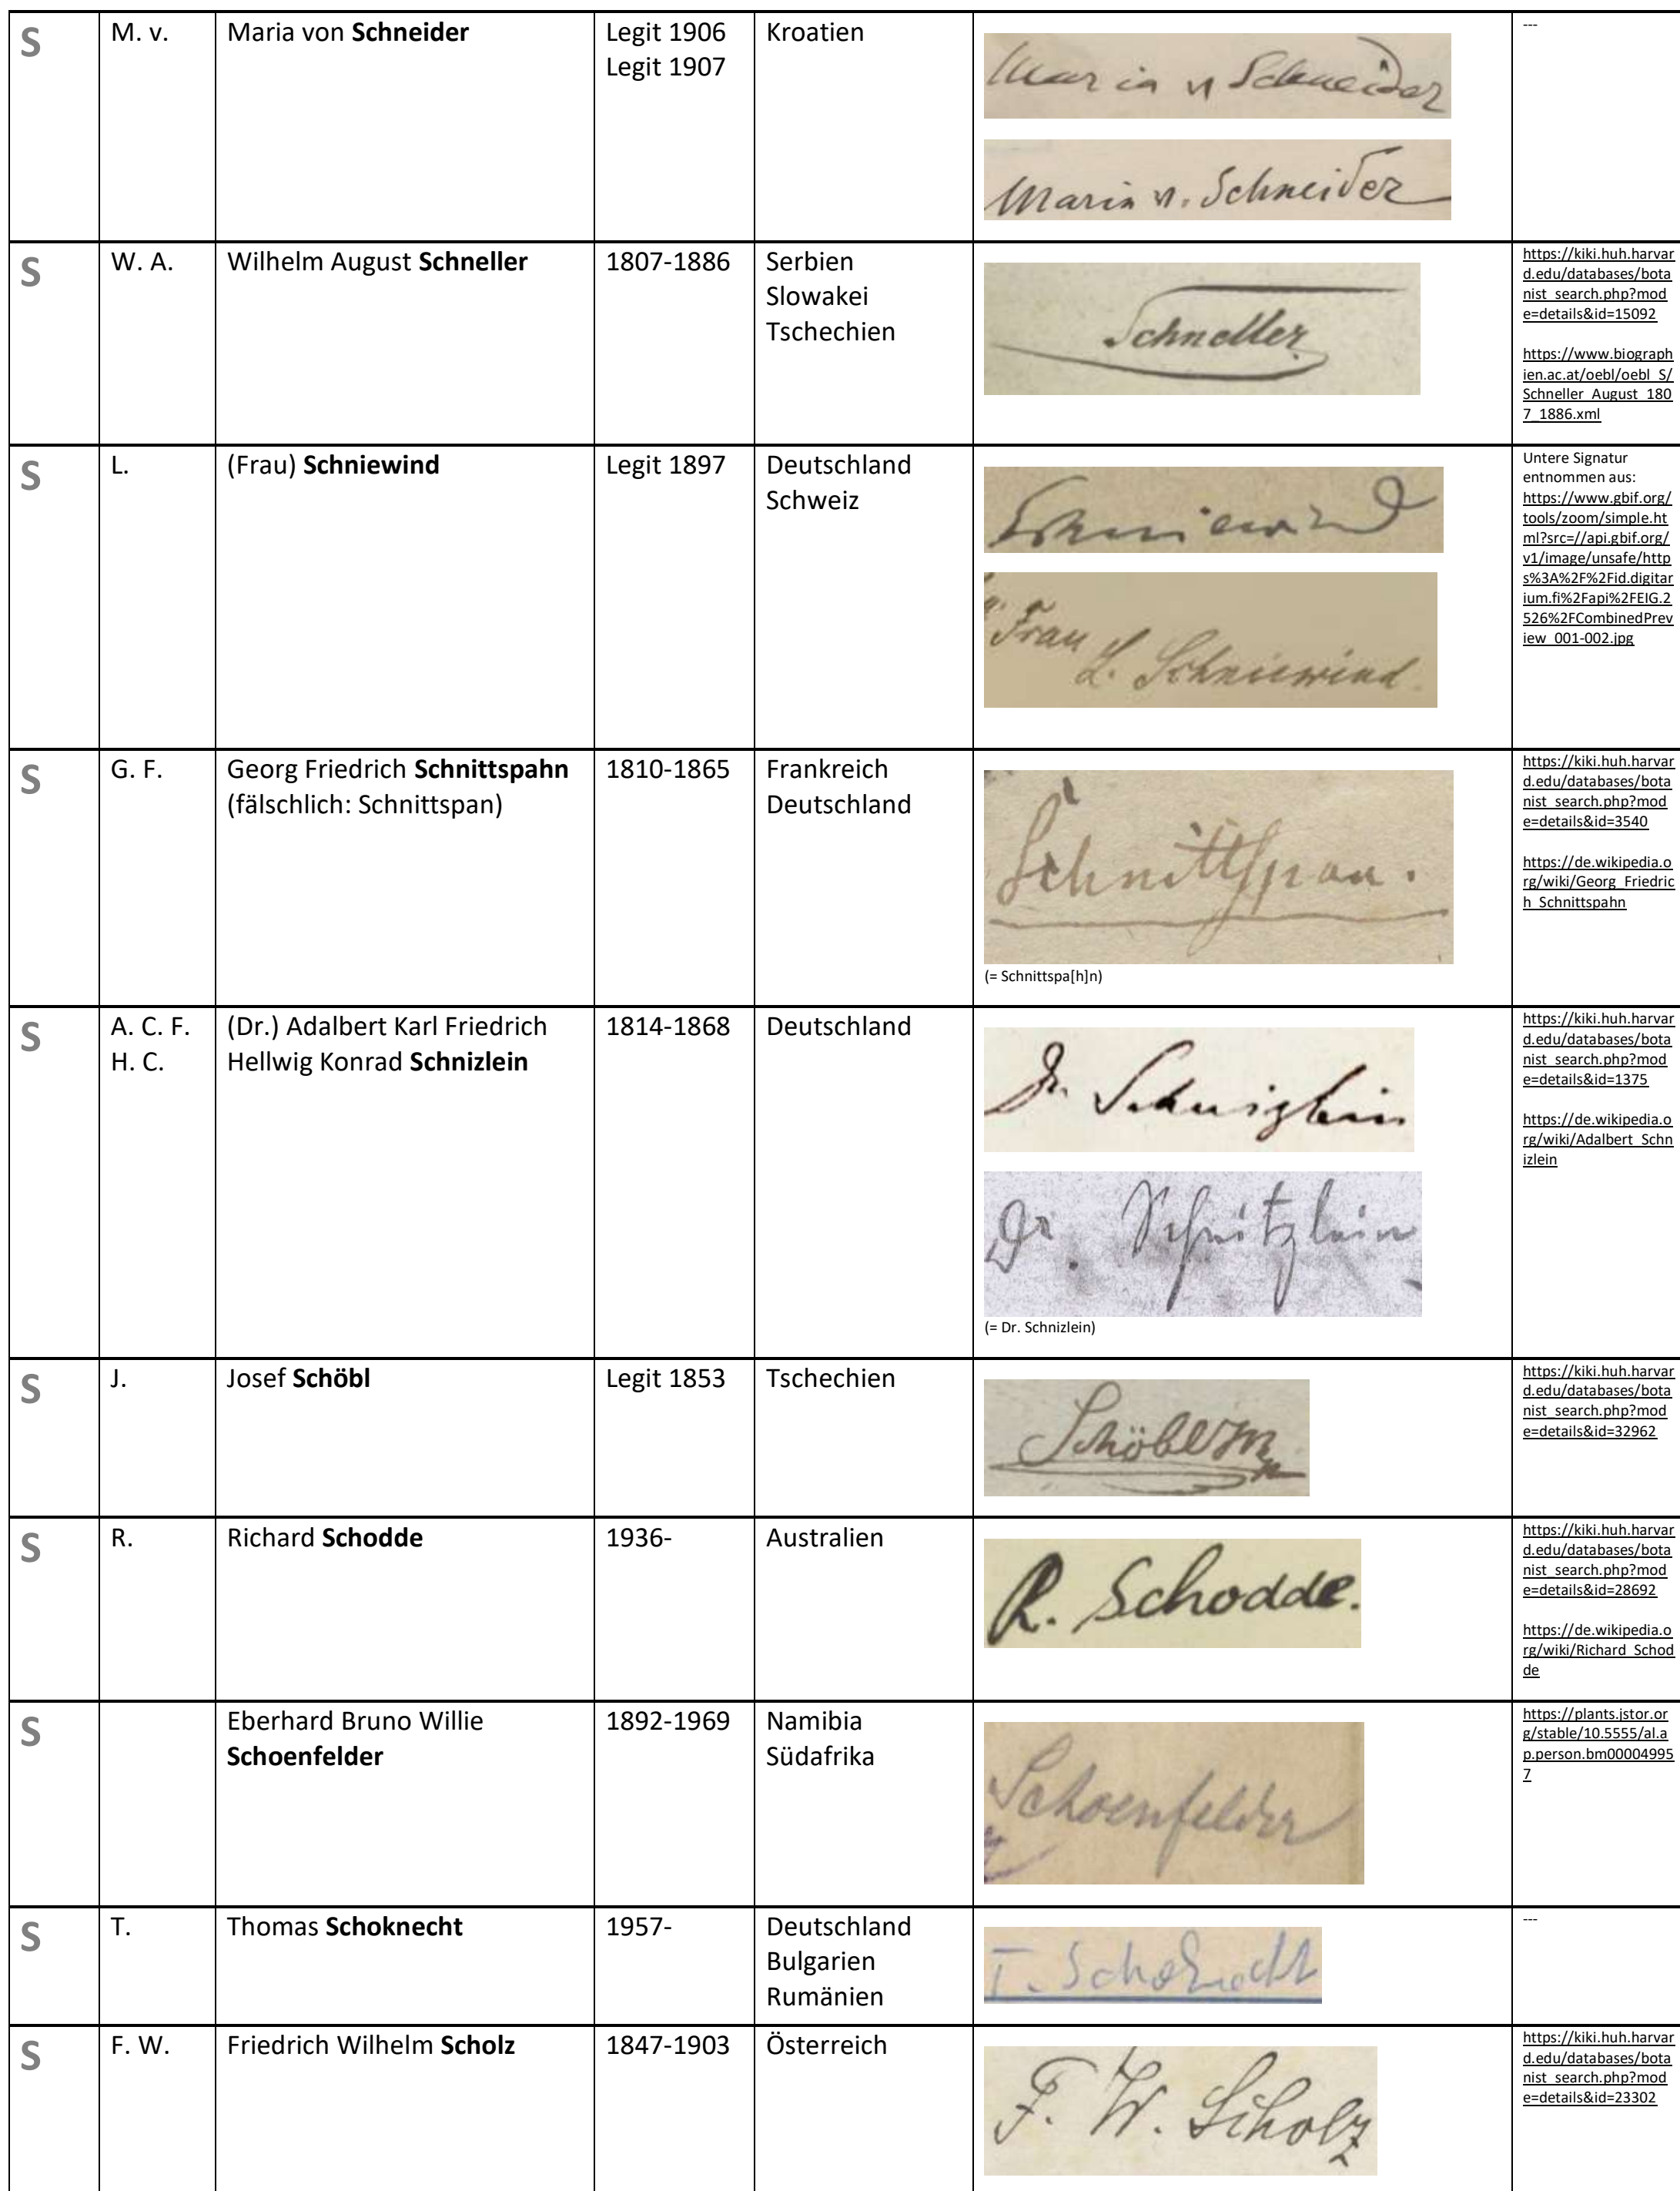 S
M. v.
Maria von Schneider
Legit 1906
Legit 1907
Kroatien
Maria v Schneider
Maria v. Schneider
---
S
W. A.
Wilhelm August Schneller
1807-1886
Serbien
Slowakei
Tschechien
Schneller
https://kiki.huh.harvar
d.edu/databases/bota
nist_search.php?mod
e=details&id=15092
https://www.biograph
ien.ac.at/oebl/oebl_S/
Schneller_August_180
7_1886.xml
S
L.
(Frau) Schniewind
Legit 1897
Deutschland
Schweiz
Schniewind
Frau
L. Schniewind
Untere Signatur
entnommen aus:
https://www.gbif.org/
tools/zoom/simple.ht
ml?src=//api.gbif.org/
v1/image/unsafe/http
s%3A%2F%2Fid.digitar
ium.fi%2Fapi%2FEIG.2
526%2FCombinedPrev
iew_001-002.jpg
S
G. F.
Georg Friedrich Schnittspahn
(fälschlich: Schnittspan)
1810-1865
Frankreich
Deutschland
Schnittspan.
(= Schnittspa[h]n)
https://kiki.huh.harvar
d.edu/databases/bota
nist_search.php?mod
e=details&id=3540
https://de.wikipedia.o
rg/wiki/Georg_Friedric
h_Schnittspahn
S
A. C. F.
H. C.
(Dr.) Adalbert Karl Friedrich
Hellwig Konrad Schnizlein
1814-1868
Deutschland
Dr. Schnizlein
Dr. Schnitzlein
(= Dr. Schnizlein)
https://kiki.huh.harvar
d.edu/databases/bota
nist_search.php?mod
e=details&id=1375
https://de.wikipedia.o
rg/wiki/Adalbert_Schn
izlein
S
J.
Josef Schöbl
Legit 1853
Tschechien
Schöbl
https://kiki.huh.harvar
d.edu/databases/bota
nist_search.php?mod
e=details&id=32962
S
R.
Richard Schodde
1936-
Australien
R. Schodde.
https://kiki.huh.harvar
d.edu/databases/bota
nist_search.php?mod
e=details&id=28692
https://de.wikipedia.o
rg/wiki/Richard_Schod
de
S
Eberhard Bruno Willie
Schoenfelder
1892-1969
Namibia
Südafrika
Schoenfelder
https://plants.jstor.or
g/stable/10.5555/al.a
p.person.bm00004995
7
S
T.
Thomas Schoknecht
1957-
Deutschland
Bulgarien
Rumänien
T. Schoknecht
---
S
F. W.
Friedrich Wilhelm Scholz
1847-1903
Österreich
F. W. Scholz
https://kiki.huh.harvar
d.edu/databases/bota
nist_search.php?mod
e=details&id=23302